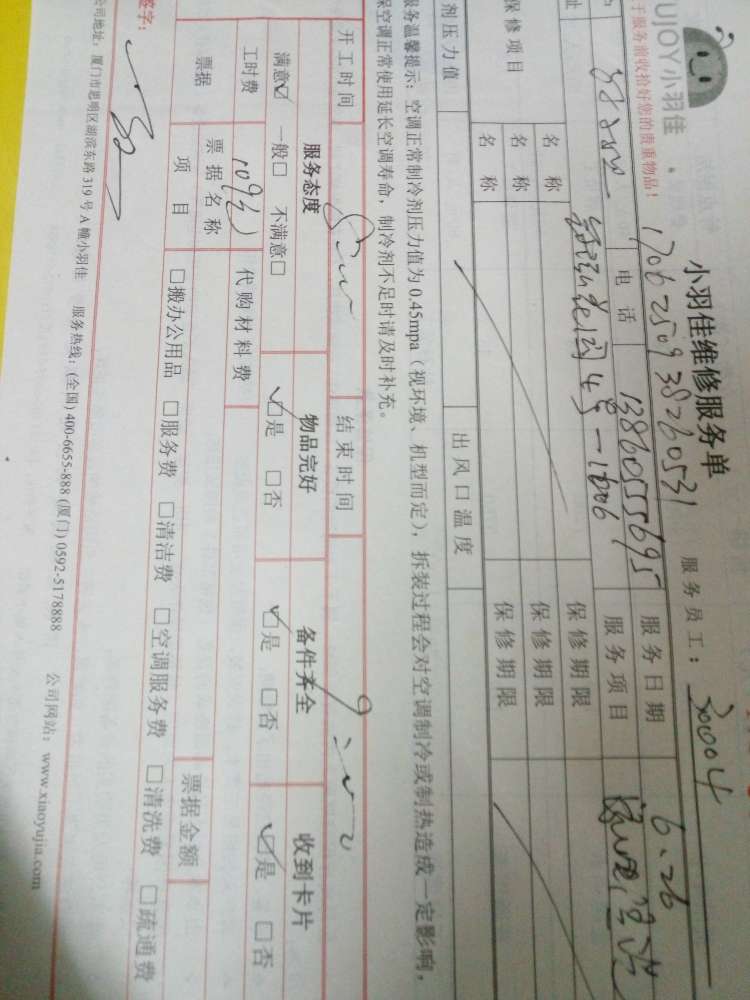 UJOY小羽佳
小羽佳维修服务单
服务员工: 30004
于服务前收拾好您的贵重物品!
1706250938260531
电话 13860555695 服务日期 6.26
4号-1606 服务项目
保修项目 名称 保修期限
名称 保修期限
名称 保修期限
剂压力值 出风口温度
服务温馨提示: 空调正常制冷剂压力值为 0.45mpa (视环境、机型而定), 拆装过程会对空调制冷或制热造成一定影响,
保空调正常使用延长空调寿命, 制冷剂不足时请及时补充。
开工时间 结束时间
服务态度 物品完好 备件齐全 收到卡片
满意☑ 一般□ 不满意□ ☑是 □否 ☑是 □否 ☑是 □否
工时费 109元 代购材料费
票据 票据名称 票据金额
项目 □搬办公用品 □服务费 □清洁费 □空调服务费 □清洗费 □疏通费
签字:
公司地址: 厦门市思明区湖滨东路 319 号 A 幢小羽佳 服务热线: (全国) 400-6655-888 (厦门) 0592-5178888 公司网站: www.xiaoyujia.com